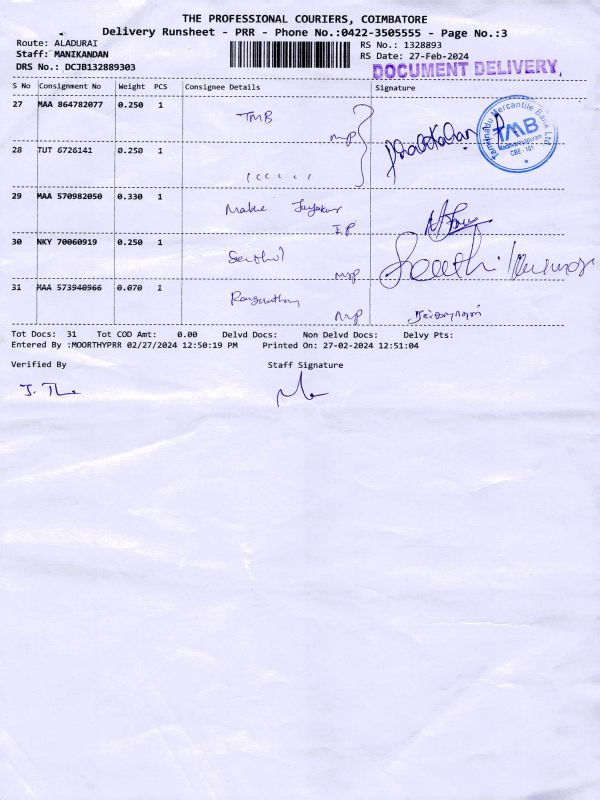 THE PROFESSIONAL COURIERS, COIMBATORE
Delivery Runsheet - PRR - Phone No.:0422-3505555 - Page No.:3
Route: ALADURAI RS No.: 1328893
Staff: MANIKANDAN RS Date: 27-Feb-2024
DRS No.: DCJB132889303 DOCUMENT DELIVERY,
S No Consignment No Weight PCS Consignee Details Signature
27 MAA 864782077 0.250 1 TMB
Tamilnadu Mercantile Bank Ltd
TMB
CBE - 101
28 TUT 6726141 0.250 1
29 MAA 570982050 0.330 1
30 NKY 70060919 0.250 1 Senthil
31 MAA 573940966 0.070 1
Tot Docs: 31 Tot COD Amt: 0.00 Delvd Docs: Non Delvd Docs: Delvy Pts:
Entered By :MOORTHYPRR 02/27/2024 12:50:19 PM Printed On: 27-02-2024 12:51:04
Verified By Staff Signature